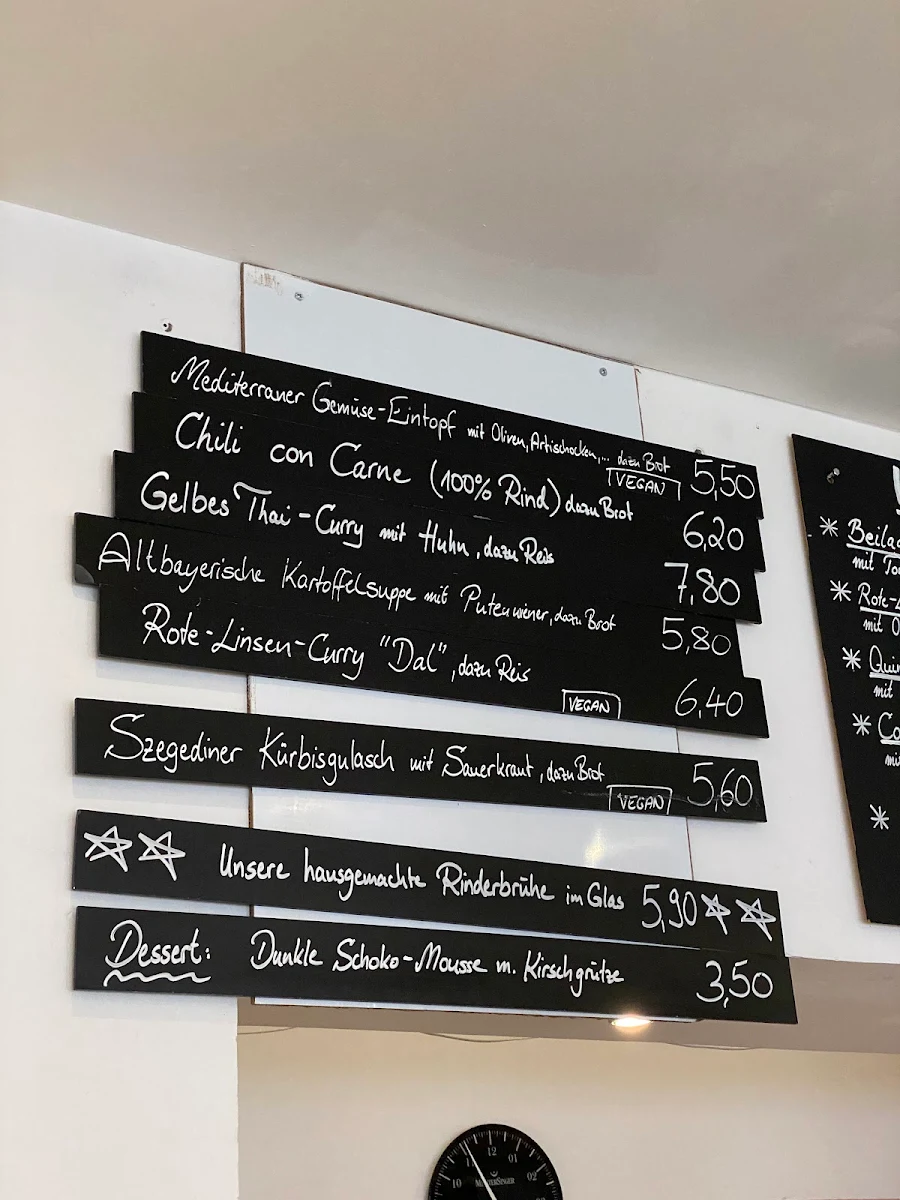 Mediterraner Gemüse-Eintopf mit Oliven, Artischocken,... dazu Brot VEGAN 5,50
Chili con Carne (100% Rind) dazu Brot 6,20
Gelbes Thai-Curry mit Huhn, dazu Reis 7,80
Altbayerische Kartoffelsuppe mit Putenwiener, dazu Brot 5,80
Rote-Linsen-Curry "Dal", dazu Reis VEGAN 6,40
Szegediner Kürbisgulasch mit Sauerkraut, dazu Brot VEGAN 5,60
Unsere hausgemachte Rinderbrühe im Glas 5,90
Dessert: Dunkle Schoko-Mousse m. Kirschgrütze 3,50
Rote-
mit
mit
10 11 12 01 02
MEISTERSINGER